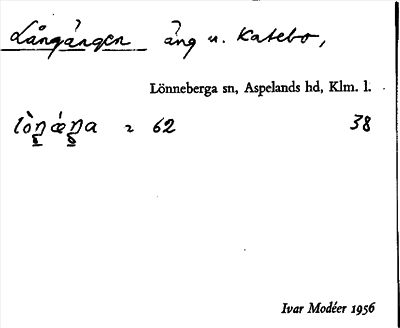 Långängen äng u. Katebo,
Lönneberga sn, Aspelands hd, Klm. l.
lòŋǽŋa 2 62 38
Ivar Modéer 1956